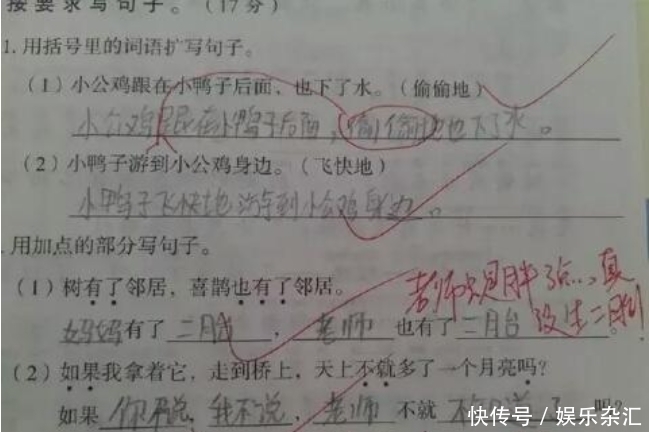 按要求写句子。（17分）
1. 用括号里的词语扩写句子。
（1）小公鸡跟在小鸭子后面，也下了水。（偷偷地）
小公鸡跟在小鸭子后面，偷偷地也下了水。
（2）小鸭子游到小公鸡身边。（飞快地）
小鸭子飞快地游到小公鸡身边。
. 用加点的部分写句子。
（1）树有了邻居，喜鹊也有了邻居。
妈妈有了二月台，老师也有了二月台
老师只是胖了点…，真没生二月台！
（2）如果我拿着它，走到桥上，天上不就多了一个月亮吗？
如果你不说，我不说，老师不就不知道了吗？
快传号／娱乐杂汇